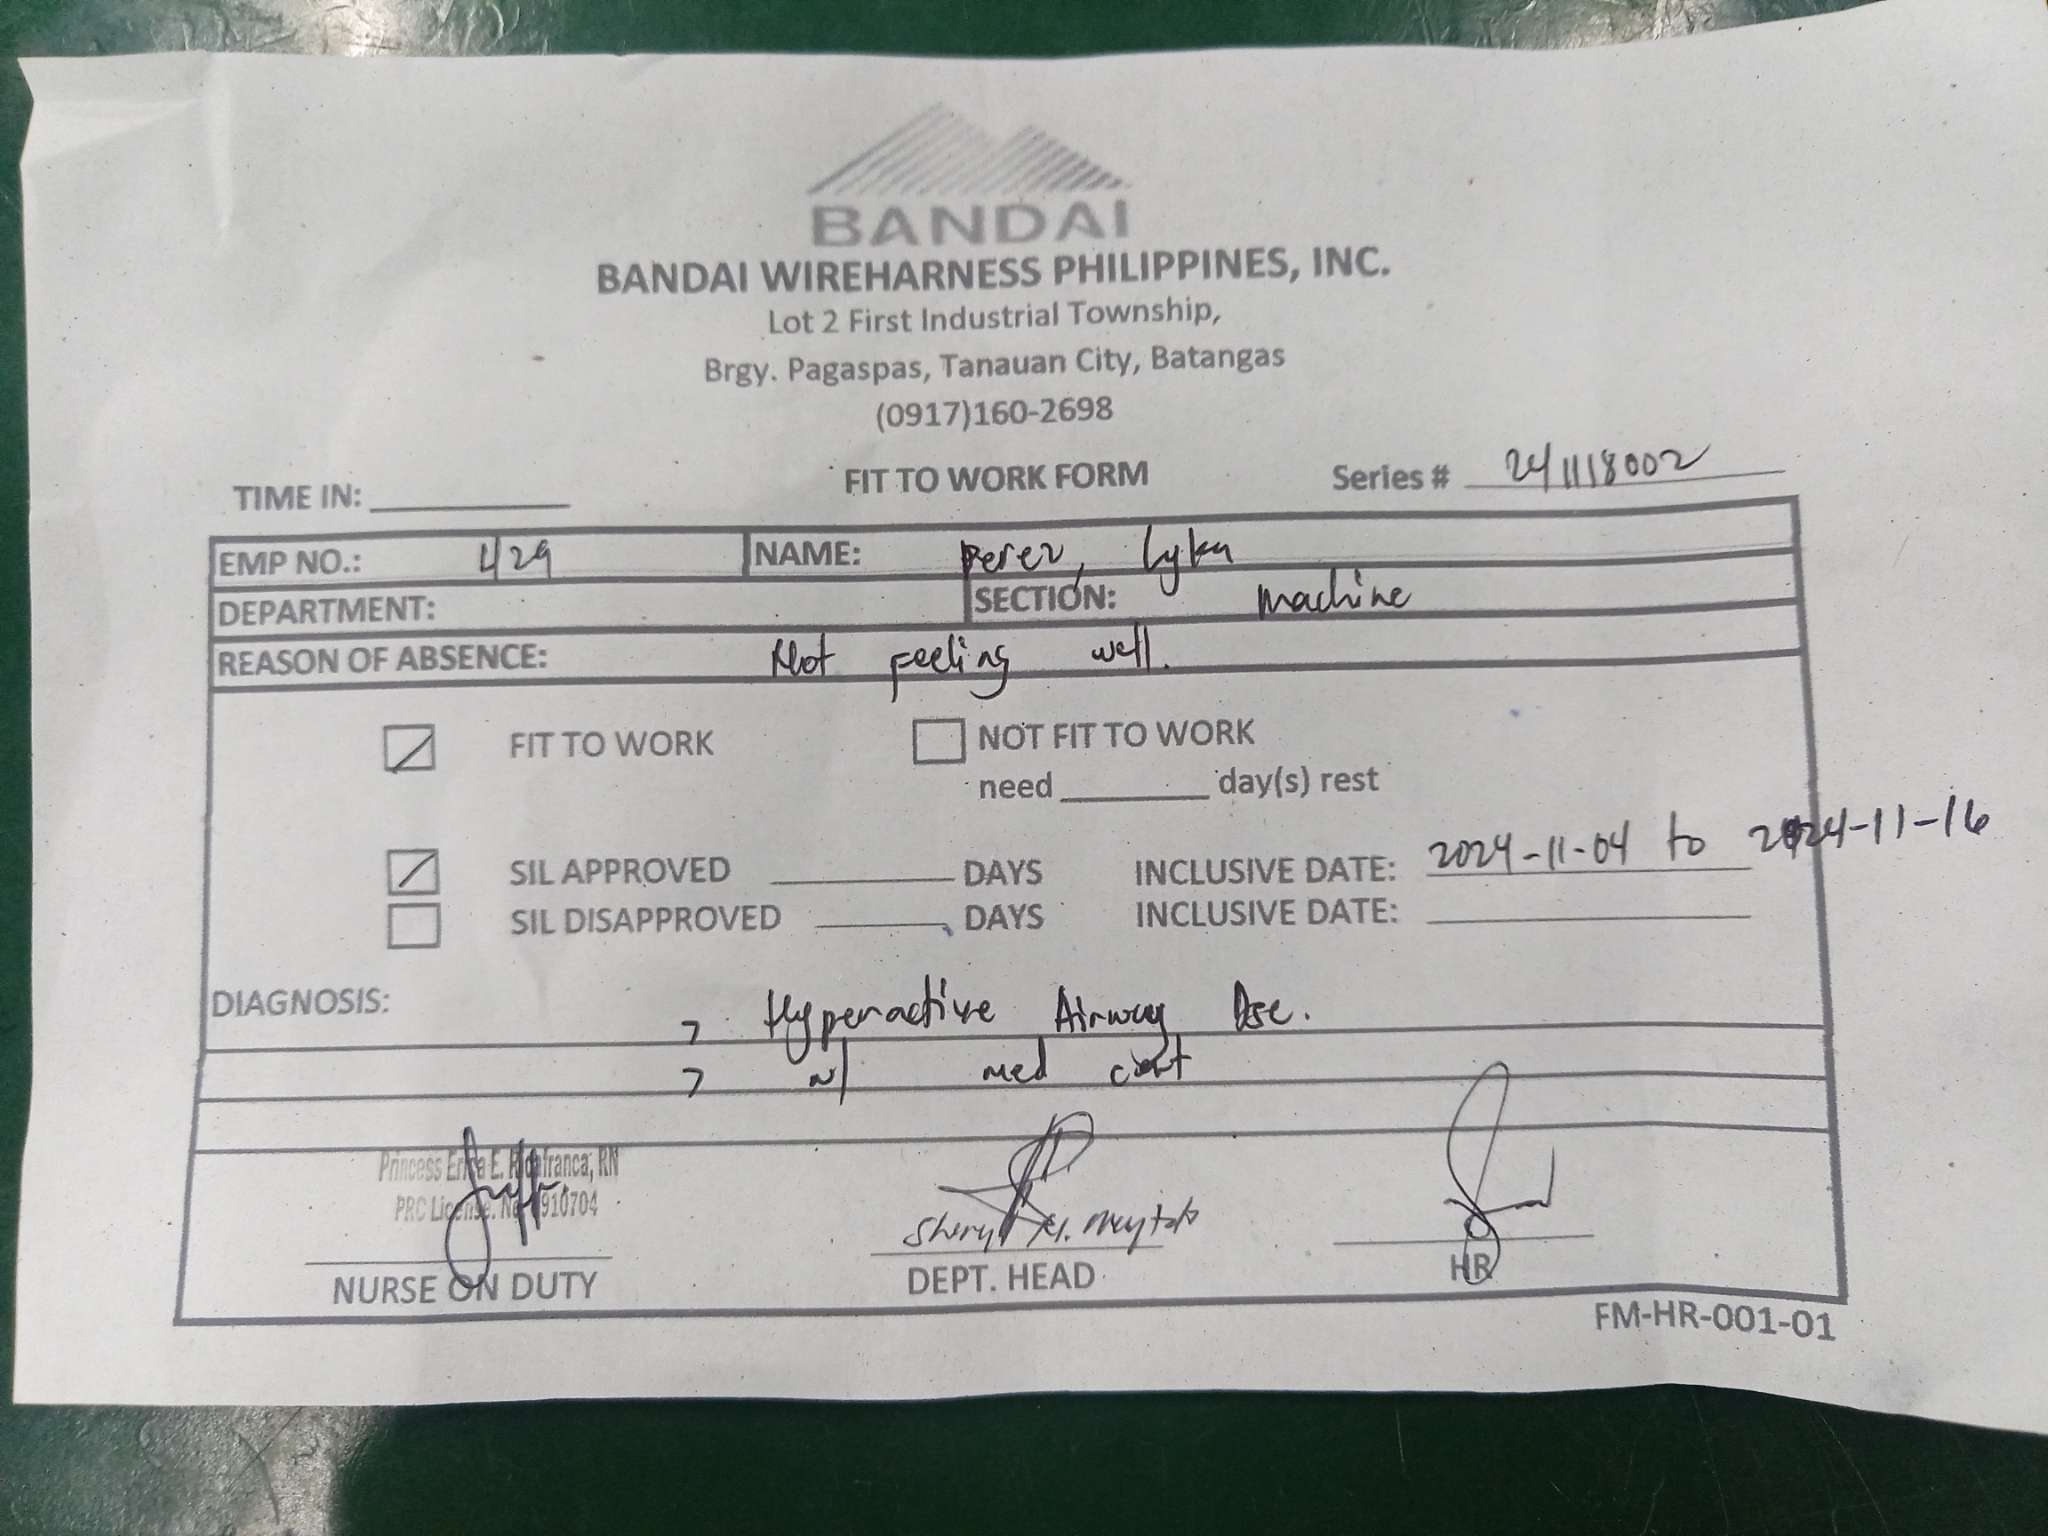 BANDAI
BANDAI WIREHARNESS PHILIPPINES, INC.
Lot 2 First Industrial Township,
Brgy. Pagaspas, Tanauan City, Batangas
(0917)160-2698
TIME IN: FIT TO WORK FORM Series # 241118002
EMP NO.: 429 NAME: Perez, Lyka
DEPARTMENT: SECTION: Machine
REASON OF ABSENCE: Not feeling well.
FIT TO WORK NOT FIT TO WORK
need day(s) rest
SIL APPROVED DAYS INCLUSIVE DATE: 2024-11-04 to 2024-11-16
SIL DISAPPROVED DAYS INCLUSIVE DATE:
DIAGNOSIS: > Hyperactive Airway Dse.
> w/ med cert
Princess E. RN
PRC License. No. 910704
NURSE ON DUTY DEPT. HEAD HR
FM-HR-001-01